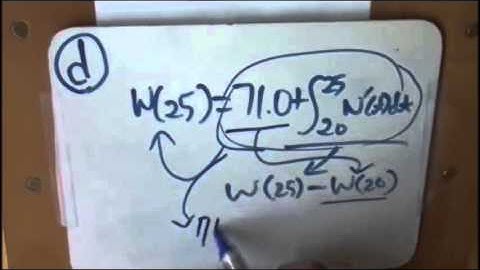 d
W(25) = 71.0 + ∫₂₀²⁵ W'(t)dt
W(25) - W(20)
71